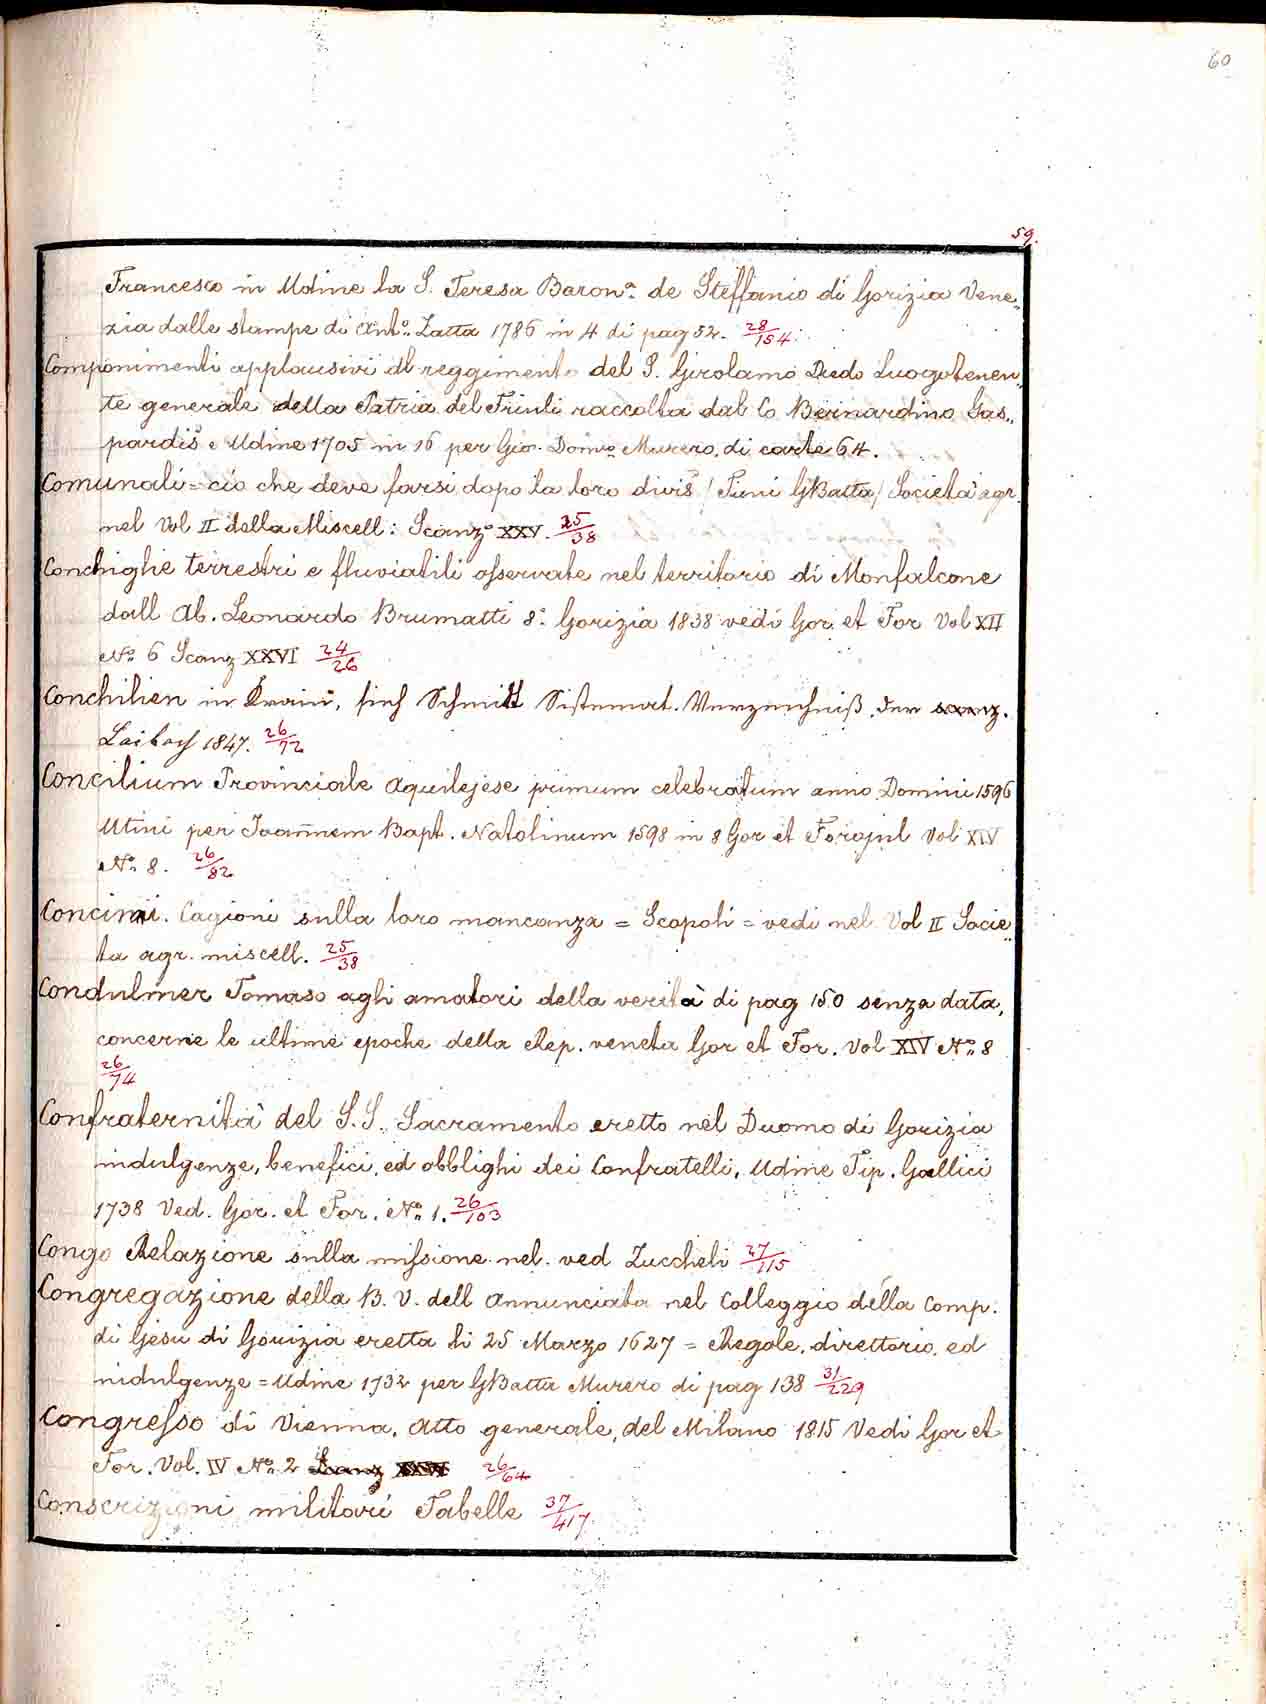 60
59.
Francesco in Udine la S. Teresa Baron.ª de Steffanio di Gorizia Vene„
zia dalle stampe di Ant.º Zatta 1786 in 4 di pag 52. 28/154.
Componimenti applausivi al reggimento del S. Girolamo Diedo Luogotenen„
te generale della Patria del Friuli raccolta dal Co Bernardino Gas„
pardis e Udine 1705 in 16 per Gio. Dom.co Murero, di carte 64.
Comunali = ciò che deve farsi dopo la loro divis / GBatta / Società agr.
nel Vol II della Miscell: Scanz.º XXV. 25/38
Conchighe terrestri e fluviatili osservate nel territorio di Monfalcone
dall Ab. Leonardo Brumatti 8.º Gorizia 1838 vedi Gor. et For Vol XII
N.º 6 Scanz XXVI 24/26
Conchilien in Krain, sieh Schmitt Sistemat. Verzeichniß der scanz.
Laibach 1847. 26/72
Concilium Provinciale Aquilejese primum celebratum anno Domini 1596
Utini per Joañnem Bapt. Natolinum 1598 in 8 Gor et Forojul Vol XIV
N.º 8. 26/82
Concimi. Cagioni sulla loro mancanza = Scopoli = vedi nel Vol II Socie„
ta agr. miscell. 25/38
Condulmer Tomaso agli amatori della verità di pag 150 senza data,
concerne le ultime epoche della Rep. veneta Gor et For. Vol XIV N.º 8
26/74
Confraternità del S.S. Sacramento eretto nel Duomo di Gorizia
indulgenze, benefici, ed obblighi dei Confratelli, Udine Tip. Gallici
1738 Ved. Gor. et For. N.º 1. 26/103
Congo Relazione sulla missione nel. ved Zuccheli 27/115
Congregazione della B. V. dell Annunciata nel Colleggio della Comp.
di Gesu di Gorizia eretta li 25 Marzo 1627 = Regole, direttorio, ed
indulgenze = Udine 1732 per GBatta Murero di pag 138 31/229
Congresso di Vienna, Atto generale, del Milano 1815 Vedi Gor et
For. Vol. IV N.º 2 Scanz XXVI 26/64
Conscrizioni militari Tabelle 37/417